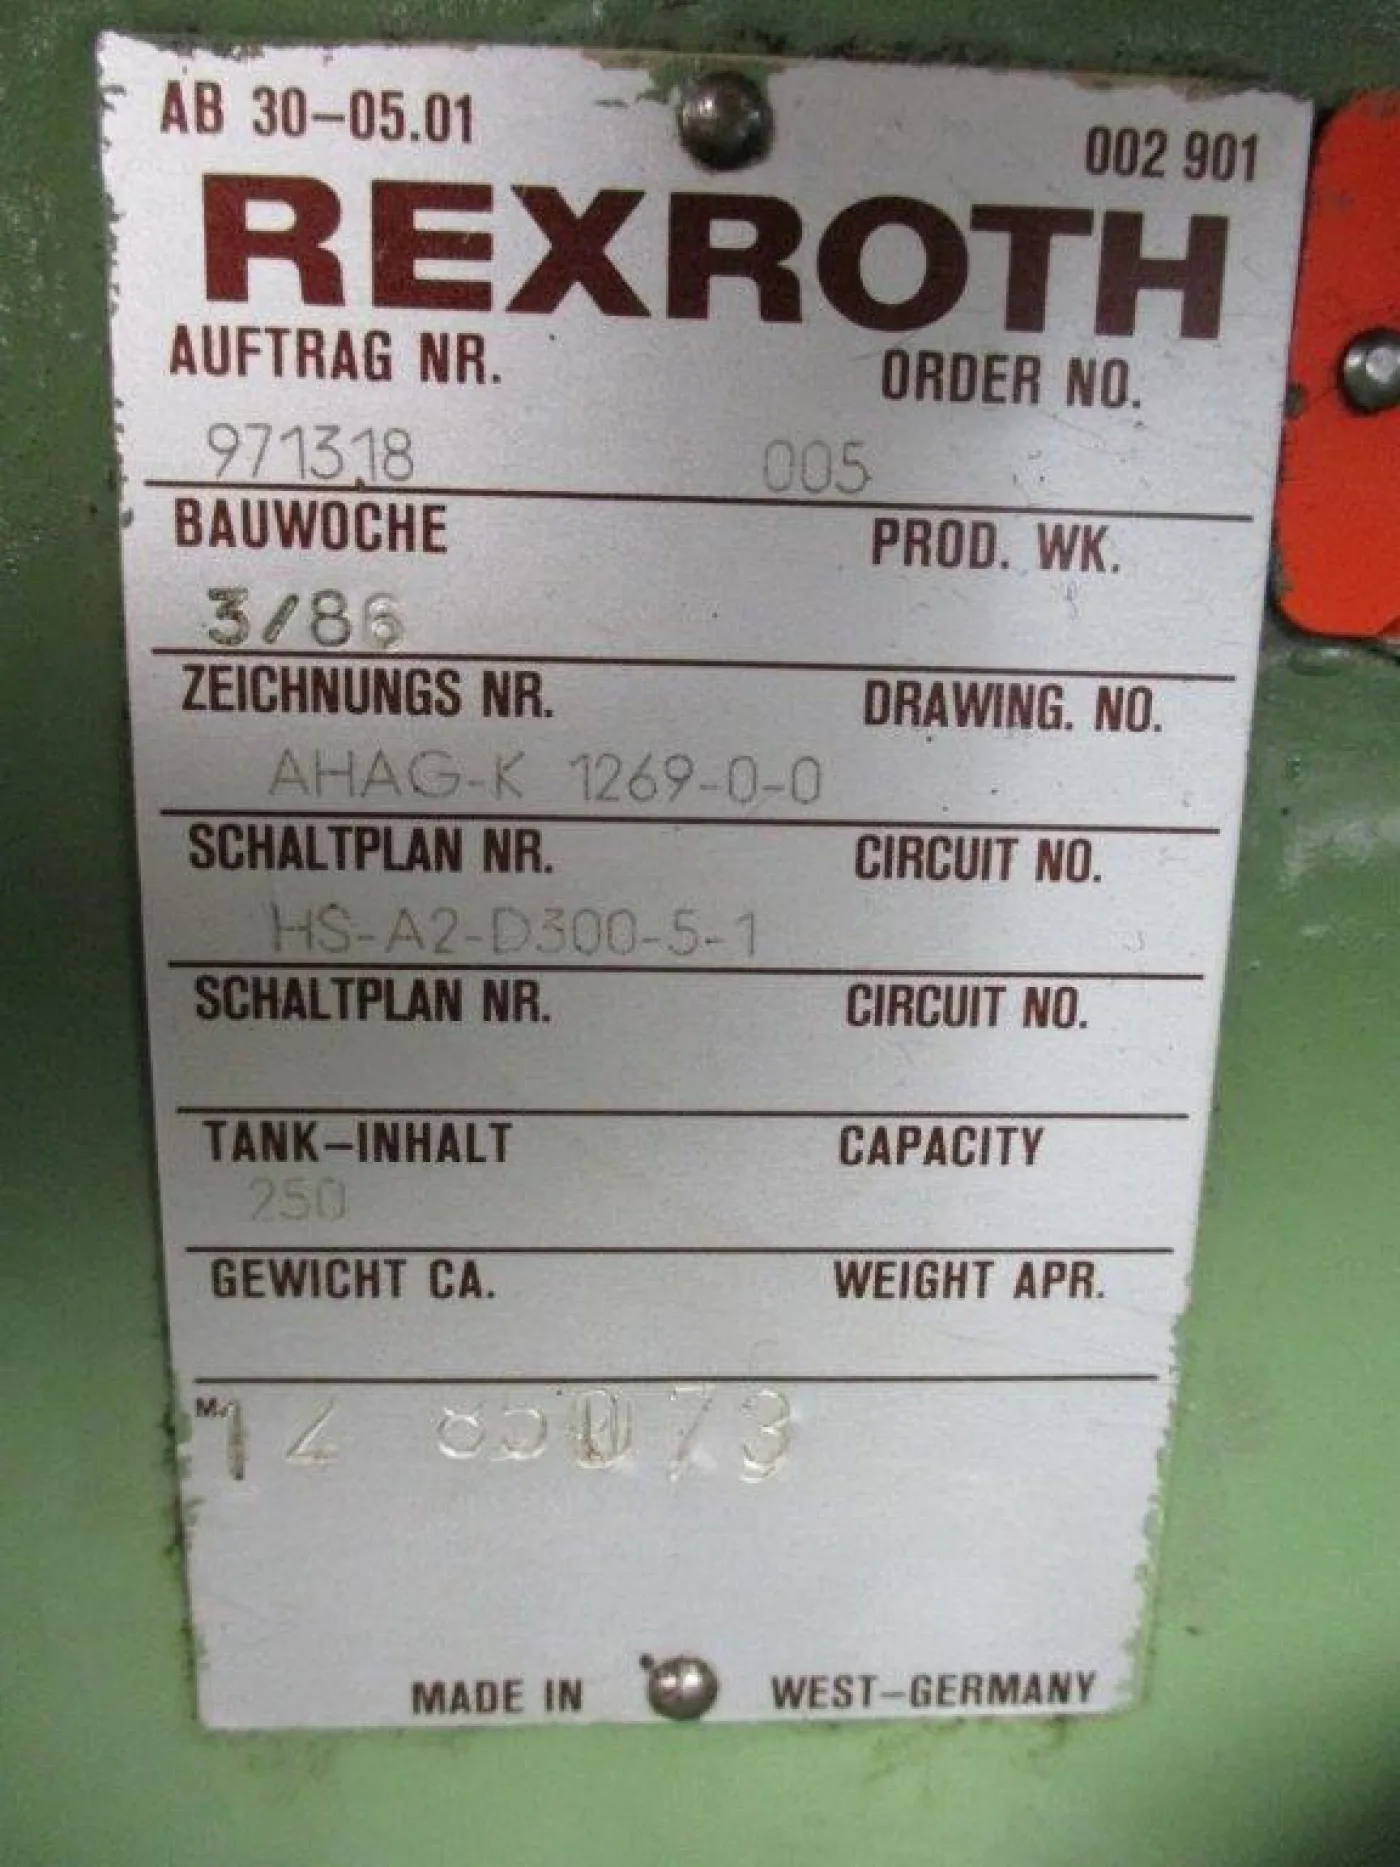 AB 30-05.01
002 901
REXROTH
AUFTRAG NR. ORDER NO.
971318 005
BAUWOCHE PROD. WK.
3/86
ZEICHNUNGS NR. DRAWING. NO.
AHAG-K 1269-0-0
SCHALTPLAN NR. CIRCUIT NO.
HS-A2-D300-5-1
SCHALTPLAN NR. CIRCUIT NO.
TANK-INHALT CAPACITY
250
GEWICHT CA. WEIGHT APR.
85073
MADE IN WEST-GERMANY